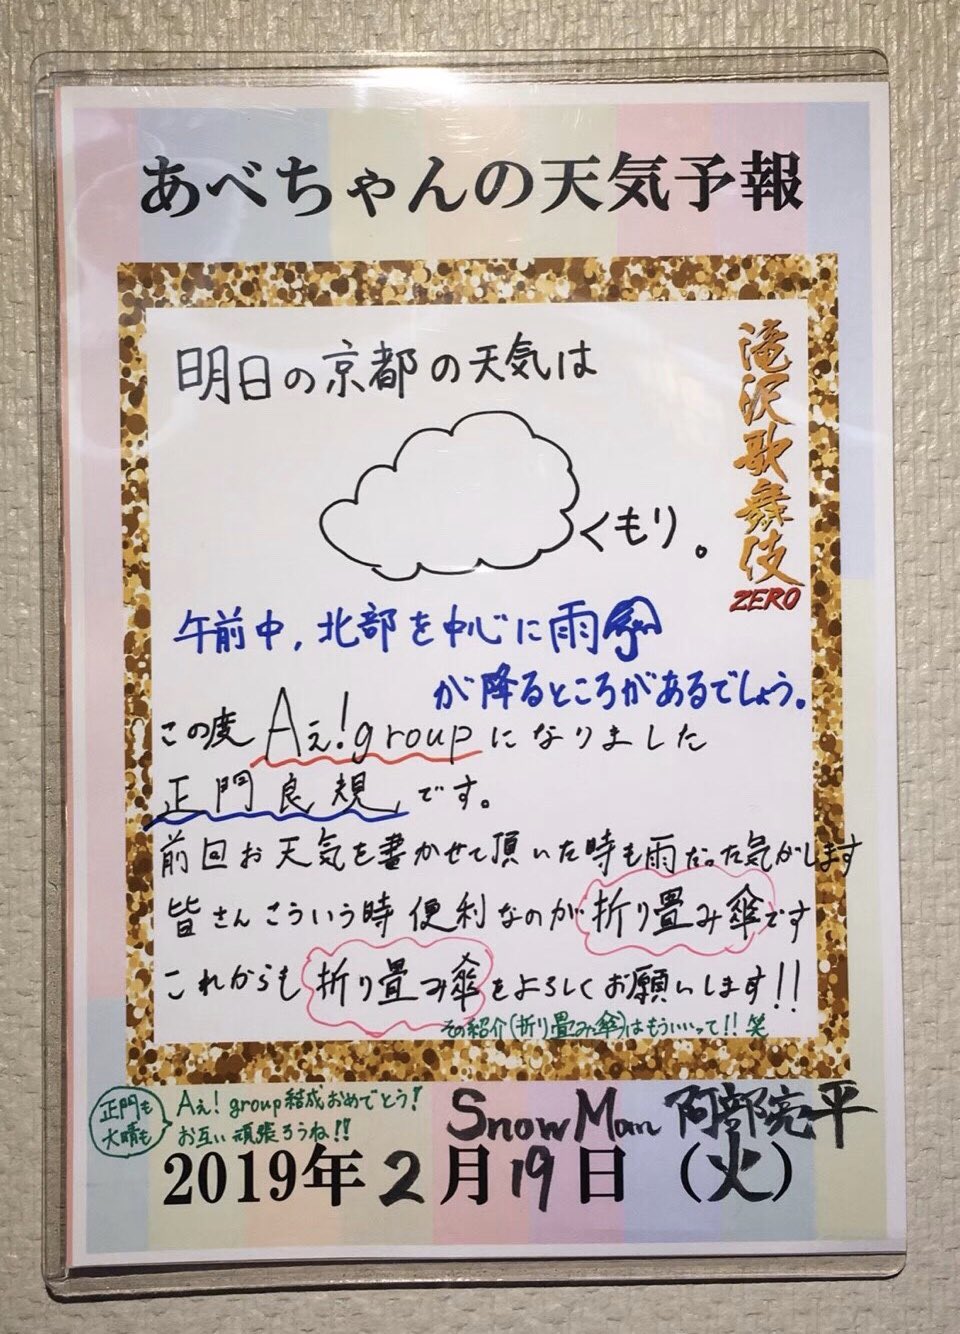 あべちゃんの天気予報
滝沢歌舞伎
ZERO
明日の京都の天気は
くもり。
午前中,北部を中心に雨
が降るところがあるでしょう。
この度 Aぇ!groupになりました
正門良規です。
前回お天気を書かせて頂いた時も雨だった気がします
皆さんこういう時便利なのが折り畳み傘です
これからも折り畳み傘をよろしくお願いします!!
その紹介(折り畳み傘)はもういいって!!笑
正門も
大晴も
Aぇ!group結成おめでとう!
お互い頑張ろうね!!
Snow Man 阿部亮平
2019年2月19日(火)